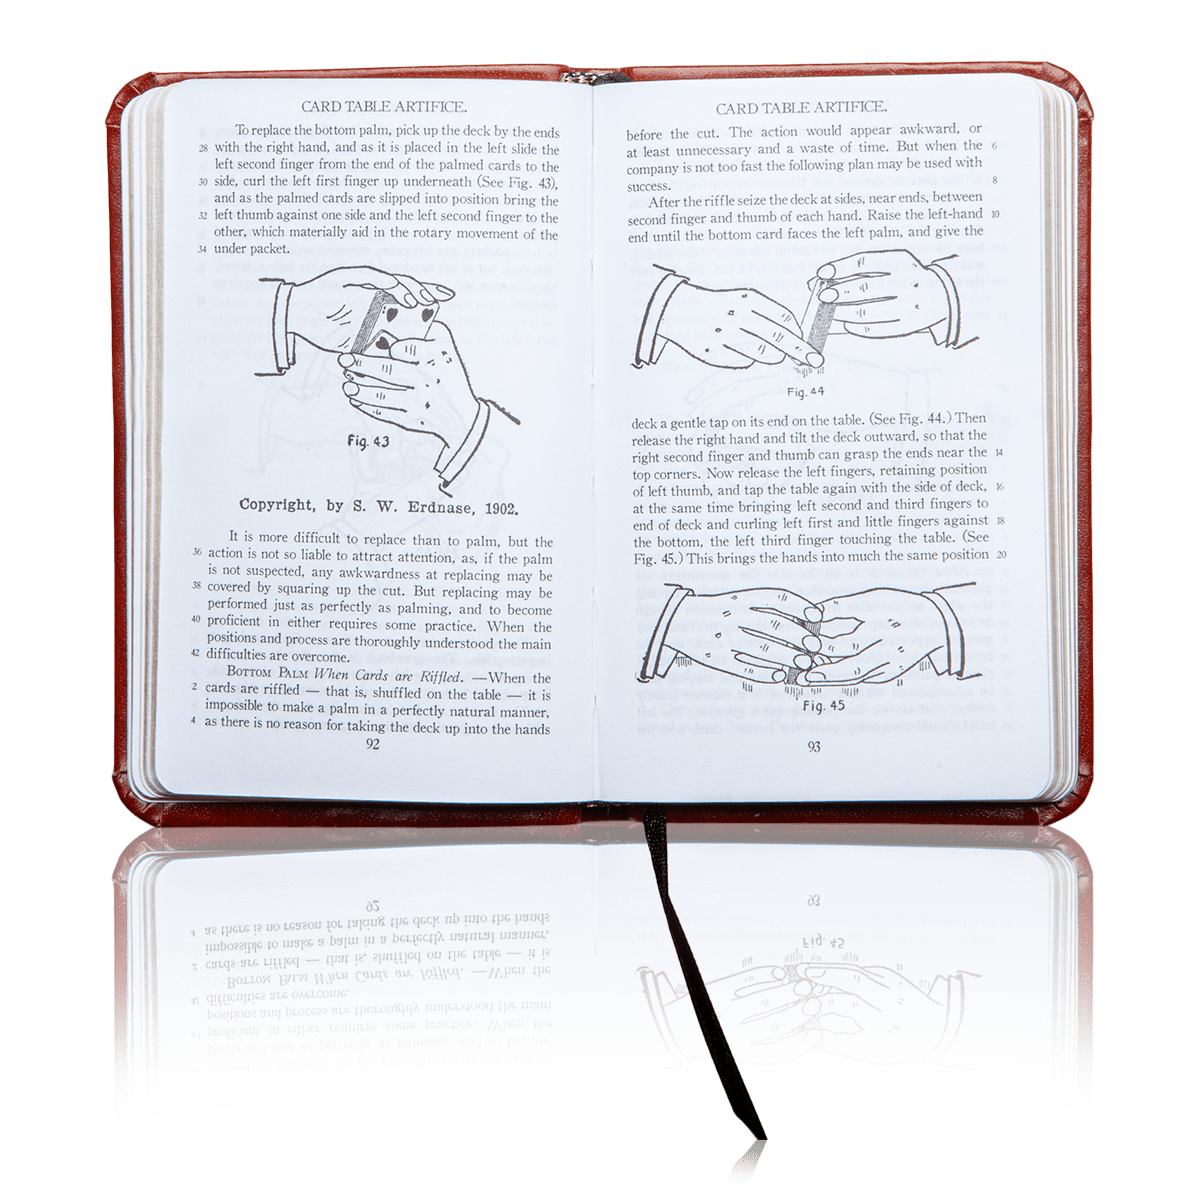 CARD TABLE ARTIFICE.
To replace the bottom palm, pick up the deck by the ends
28 with the right hand, and as it is placed in the left slide the
left second finger from the end of the palmed cards to the
30 side, curl the left first finger up underneath (See Fig. 43),
and as the palmed cards are slipped into position bring the
32 left thumb against one side and the left second finger to the
other, which materially aid in the rotary movement of the
34 under packet.
Fig. 43
Copyright, by S. W. Erdnase, 1902.
It is more difficult to replace than to palm, but the
36 action is not so liable to attract attention, as, if the palm
is not suspected, any awkwardness at replacing may be
38 covered by squaring up the cut. But replacing may be
performed just as perfectly as palming, and to become
40 proficient in either requires some practice. When the
positions and process are thoroughly understood the main
42 difficulties are overcome.
BOTTOM PALM When Cards are Riffled. —When the
2 cards are riffled — that is, shuffled on the table — it is
impossible to make a palm in a perfectly natural manner,
4 as there is no reason for taking the deck up into the hands
92
CARD TABLE ARTIFICE.
before the cut. The action would appear awkward, or
at least unnecessary and a waste of time. But when the 6
company is not too fast the following plan may be used with
success. 8
After the riffle seize the deck at sides, near ends, between
second finger and thumb of each hand. Raise the left-hand 10
end until the bottom card faces the left palm, and give the
Fig. 44
deck a gentle tap on its end on the table. (See Fig. 44.) Then
release the right hand and tilt the deck outward, so that the
right second finger and thumb can grasp the ends near the 14
top corners. Now release the left fingers, retaining position
of left thumb, and tap the table again with the side of deck, 16
at the same time bringing left second and third fingers to
end of deck and curling left first and little fingers against 18
the bottom, the left third finger touching the table. (See
Fig. 45.) This brings the hands into much the same position 20
Fig. 45
93